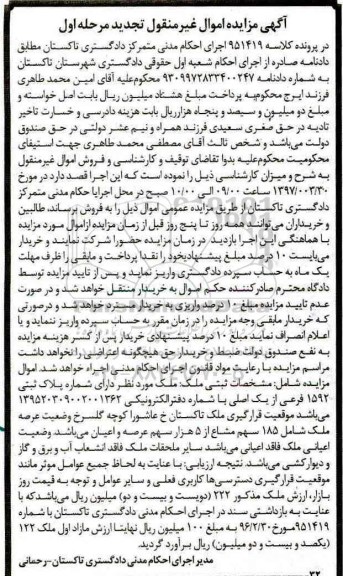 آگهی مزایده اموال غیرمنقول تجدید مرحله اول
در پرونده کلاسه ۹۵۱۴۱۹ اجرای احکام مدنی متمرکز دادگستری تاکستان مطابق
دادنامه صادره از اجرای احکام شعبه اول حقوقی دادگستری شهرستان تاکستان
به شماره دادنامه ۹۳۰۹۹۷۲۸۳۲۴۰۰۲۴۷ محکوم‌علیه آقای امین محمد طاهری
فرزند ایرج محکوم‌به پرداخت مبلغ هشتاد میلیون ریال بابت اصل خواسته و
مبلغ دو میلیون و سیصد و پنجاه هزارریال بابت هزینه دادرسی و خسارت تاخیر
تادیه در حق صغری سعیدی فرزند همراه و نیم عشر دولتی در حق صندوق
دولت می‌باشد و شخص ثالث آقای مصطفی محمد طاهری جهت استیفای
محکومیت محکوم‌علیه بدوا تقاضای توقیف و کارشناسی و فروش اموال غیرمنقول
به شرح و میزان کارشناسی ذیل را نموده است که این اجرا قصد دارد در مورخ
۱۳۹۷/۰۳/۳۰ ساعت ۰۹/۰۰ الی ۱۰/۰۰ صبح در محل اجرایا حکام مدنی متمرکز
دادگستری تاکستان از طریق مزایده عمومی اموال ذیل را به فروش برساند، طالبین
و خریداران می‌توانند همه روز تا پنج روز قبل از زمان مزایده ازاموال مورد مزایده
با هماهنگی این اجرا بازدید در زمان مزایده حضورا شرکت نمایند و خریدار
می‌بایست ۱۰ درصد مبلغ پیشنهادی‌خود را نقدا پرداخت و مابقی را ظرف مهلت
یک ماه به حساب سپرده دادگستری واریز نماید و پس از تایید مزایده توسط
دادگاه محترم صادرکننده حکم اموال به خریدار منتقل خواهد شد و در صورت
عدم تایید مزایده مبلغ ۱۰ درصد واریزی به خریدار مسترد خواهد شد و درصورتی
که خریدار مابقی وجه مزایده را در زمان مقرر به حساب سپرده واریز ننماید و یا
اعلام انصراف نماید مبلغ ۱۰ درصد پیشنهادی خریدار پس از کسر هزینه مزایده
به نفع صندوق دولت ضبط و خریدار حق هیچگونه اعتراضی را نخواهد داشت
مراسم مزایده با رعایت مواد قانون اجرای احکام مدنی اجراء خواهد شد. اموال
مزایده شامل: مشخصات ثبتی ملک: ملک مورد نظر دارای شماره پلاک ثبتی
۱۵۹۲ فرعی از یک اصلی با شماره دفترالکترونیکی ۱۳۹۵۲۰۳۰۹۰۰۲۰۰۱۳۶۲
می‌باشد موقعیت قرارگیری ملک تاکستان خ عاشورا کوچه گلسرخ وضعیت عرصه
ملک شامل ۱۸۵ سهم مشاع از ۵ هزار سهم عرصه و اعیان می‌باشد. وضعیت
اعیانی ملک فاقد اعیانی می‌باشد سایر ملحقات ملک فاقد انشعاب آب و برق و گاز
و دیوارکشی می‌باشد. نتیجه ارزیابی: با عنایت به لحاظ جمیع عوامل موثر مانند
موقعیت قرارگیری دسترسی‌ها کاربری فعلی و سایر عوامل و توجه به قیمت روز
بازار، ارزش ملک مذکور ۲۲۲ (دویست و بیست و دو) میلیون ریال می‌باشدکه با
عنایت به بازداشتی سند در اجرای احکام مدنی دادگستری تاکستان با شماره
۹۵۱۴۱۹مورخ۹۶/۲/۳۰ به مبلغ ۱۰۰ میلیون ریال نهایتا ارزش مازاد اول ملک ۱۲۲
(یکصد و بیست و دو میلیون) ریال برآورد گردید.
مدیر اجرای احکام مدنی دادگستری تاکستان-رحمانی